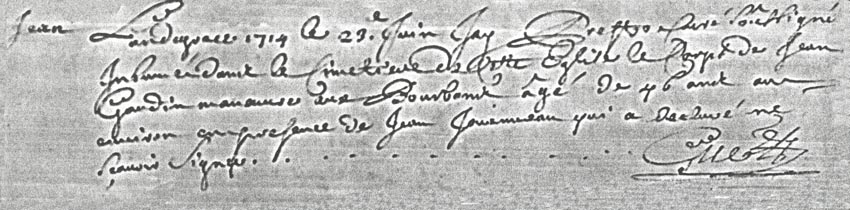 Jean L'an de grace 1714 le 23.e Juin Jay Prestre curé soussigné
Inhumé dans le Cimetiere de cette Eglise le Corps de Jean
Gaudin manœuvre aux âgé de 46 ans ou
environ en presence de Jean qui a declaré ne
sçavoir signer. . . . . . . . . . . . .